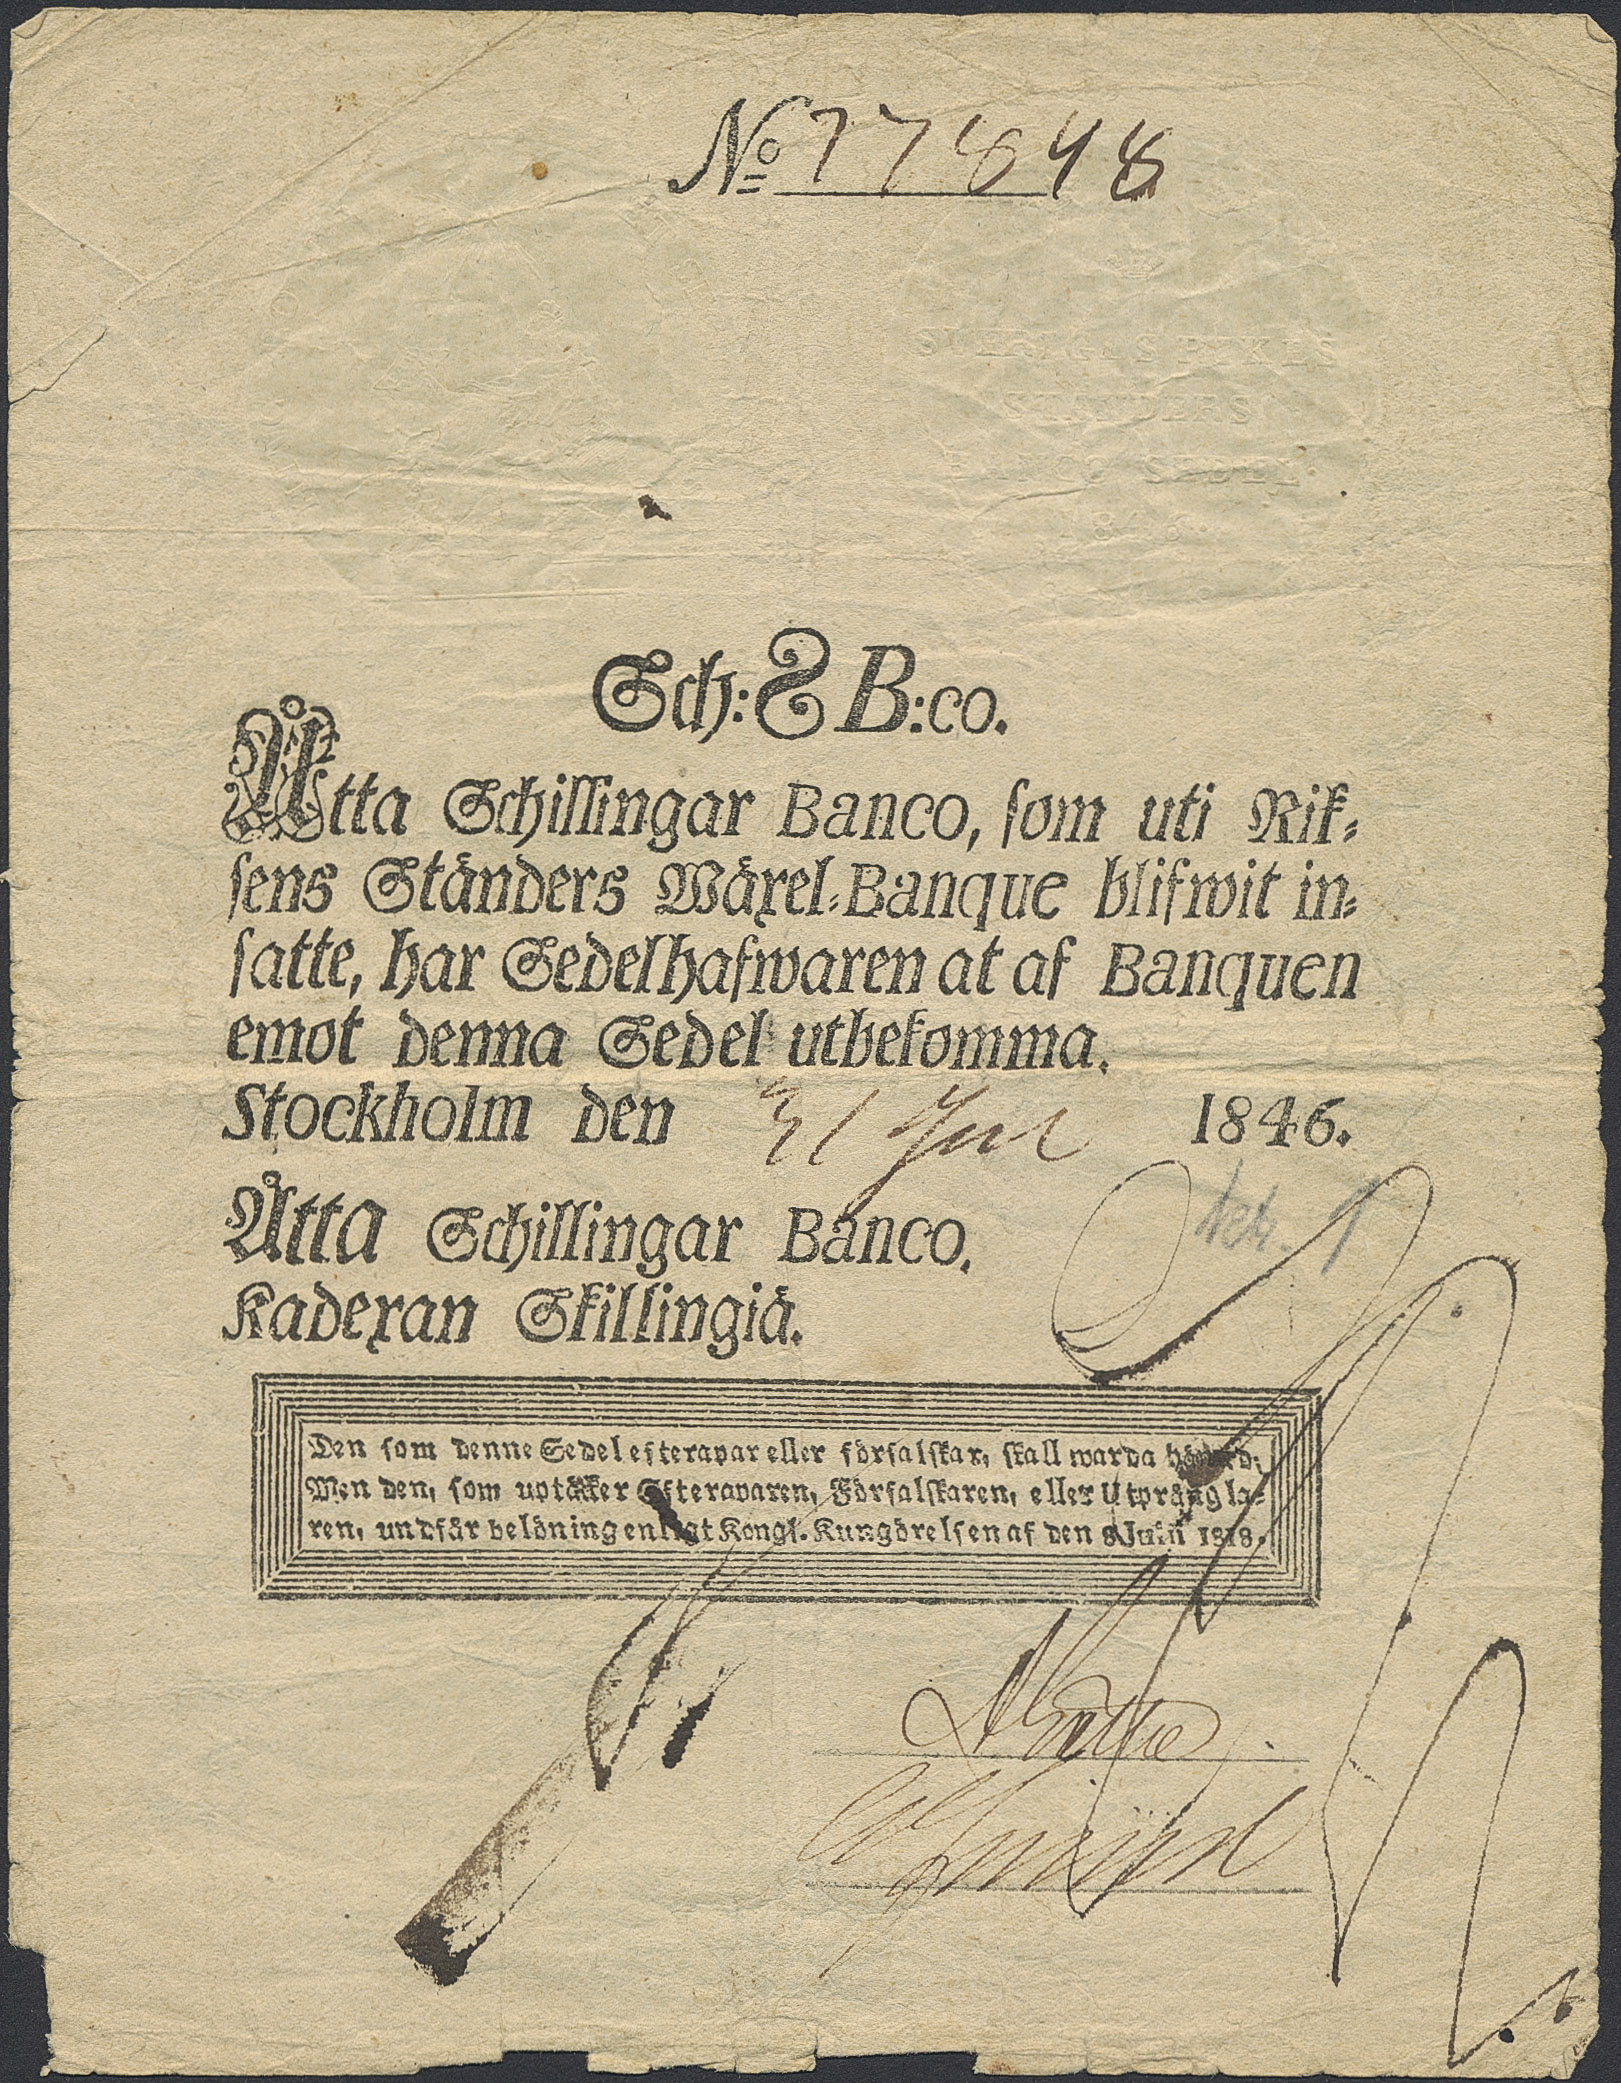 No 77848
SVERIGES RIKES
STÄNDERS
BANCO SEDEL.
Sch: 8 B:co.
Åtta Schillingar Banco, som uti Rik-
sens Ständers Wäxel-Banque blifwit in-
satte, har Sedelhafwaren at af Banquen
emot denna Sedel utbekomma.
Stockholm den 31 Jul 1846.
Åtta Schillingar Banco.
Kadexan Skillingiä.
Den som denne Sedel efterapar eller förfalskar, skall warda hängd;
Men den, som uptäcker Efteraparen, Förfalskaren, eller Utprångla-
ren, undfår belöning enligt Kongl. Kungörelsen af den 8 Juni 1818.